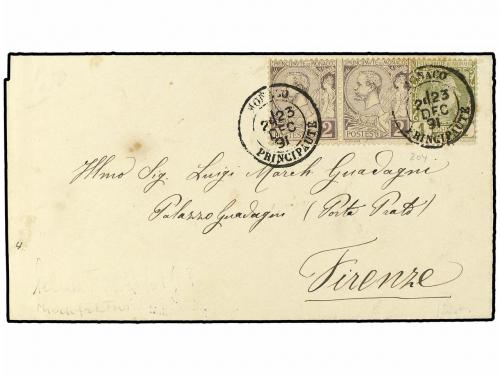 MONACO
23
DEC
91
PRINCIPAUTÉ
2
POSTES
2
MONACO
23
DEC
91
PRINCIPAUTÉ
204
Illmo Sig. Luigi March Guadagni
Palazzo Guadagni (Porta Prato)
Firenze
4